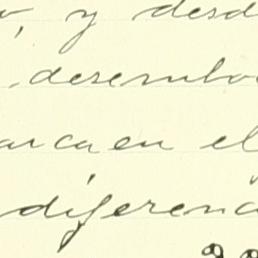 , y desd
desembo
arca en el
diferenc